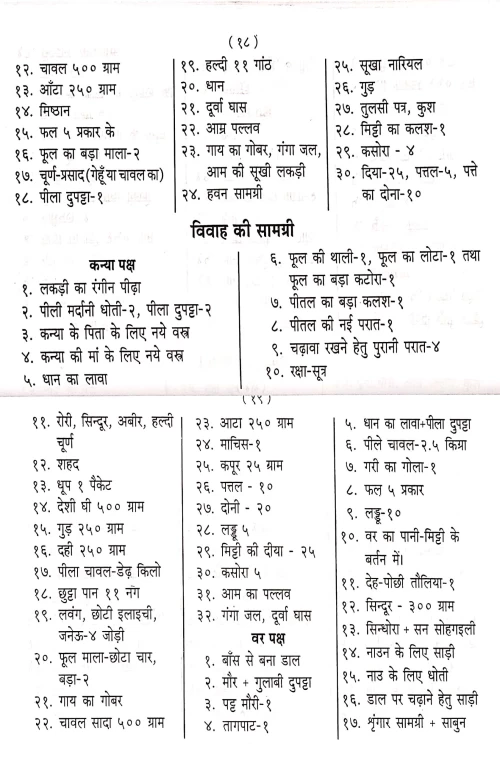 (१८)
१२. चावल ५०० ग्राम
१३. आँटा २५० ग्राम
१४. मिष्ठान
१५. फल ५ प्रकार के
१६. फूल का बड़ा माला-२
१७. चूर्ण-प्रसाद(गेहूँ या चावल का)
१८. पीला दुपट्टा-१
१९. हल्दी ११ गांठ
२०. धान
२१. दूर्वा घास
२२. आम्र पल्लव
२३. गाय का गोबर, गंगा जल,
आम की सूखी लकड़ी
२४. हवन सामग्री
२५. सूखा नारियल
२६. गुड़
२७. तुलसी पत्र, कुश
२८. मिट्टी का कलश-१
२९. कसोरा - ४
३०. दिया-२५, पत्तल-५, पत्ते
का दोना-१०
विवाह की सामग्री
कन्या पक्ष
१. लकड़ी का रंगीन पीढ़ा
२. पीली मर्दानी धोती-२, पीला दुपट्टा-२
३. कन्या के पिता के लिए नये वस्त्र
४. कन्या की मां के लिए नये वस्त्र
५. धान का लावा
६. फूल की थाली-१, फूल का लोटा-१ तथा
फूल का बड़ा कटोरा-१
७. पीतल का बड़ा कलश-१
८. पीतल की नई परात-१
९. चढ़ावा रखने हेतु पुरानी परात-४
१०. रक्षा-सूत्र
(१९)
११. रोरी, सिन्दूर, अबीर, हल्दी
चूर्ण
१२. शहद
१३. धूप १ पैकेट
१४. देशी घी ५०० ग्राम
१५. गुड़ २५० ग्राम
१६. दही २५० ग्राम
१७. पीला चावल-डेढ़ किलो
१८. छुट्टा पान ११ नंग
१९. लवंग, छोटी इलाइची,
जनेऊ-४ जोड़ी
२०. फूल माला-छोटा चार,
बड़ा-२
२१. गाय का गोबर
२२. चावल सादा ५०० ग्राम
२३. आटा २५० ग्राम
२४. माचिस-१
२५. कपूर २५ ग्राम
२६. पत्तल - १०
२७. दोनी - २०
२८. लड्डू ५
२९. मिट्टी की दीया - २५
३०. कसोरा ५
३१. आम का पल्लव
३२. गंगा जल, दूर्वा घास
वर पक्ष
१. बाँस से बना डाल
२. मौर + गुलाबी दुपट्टा
३. पट्ट मौरी-१
४. तागपाट-१
५. धान का लावा+पीला दुपट्टा
६. पीले चावल-२.५ किग्रा
७. गरी का गोला-१
८. फल ५ प्रकार
९. लड्डू-१०
१०. वर का पानी-मिट्टी के
बर्तन में।
११. देह-पोछी तौलिया-१
१२. सिन्दूर - ३०० ग्राम
१३. सिन्धोरा + सन सोहगइली
१४. नाउन के लिए साड़ी
१५. नाउ के लिए धोती
१६. डाल पर चढ़ाने हेतु साड़ी
१७. श्रृंगार सामग्री + साबुन